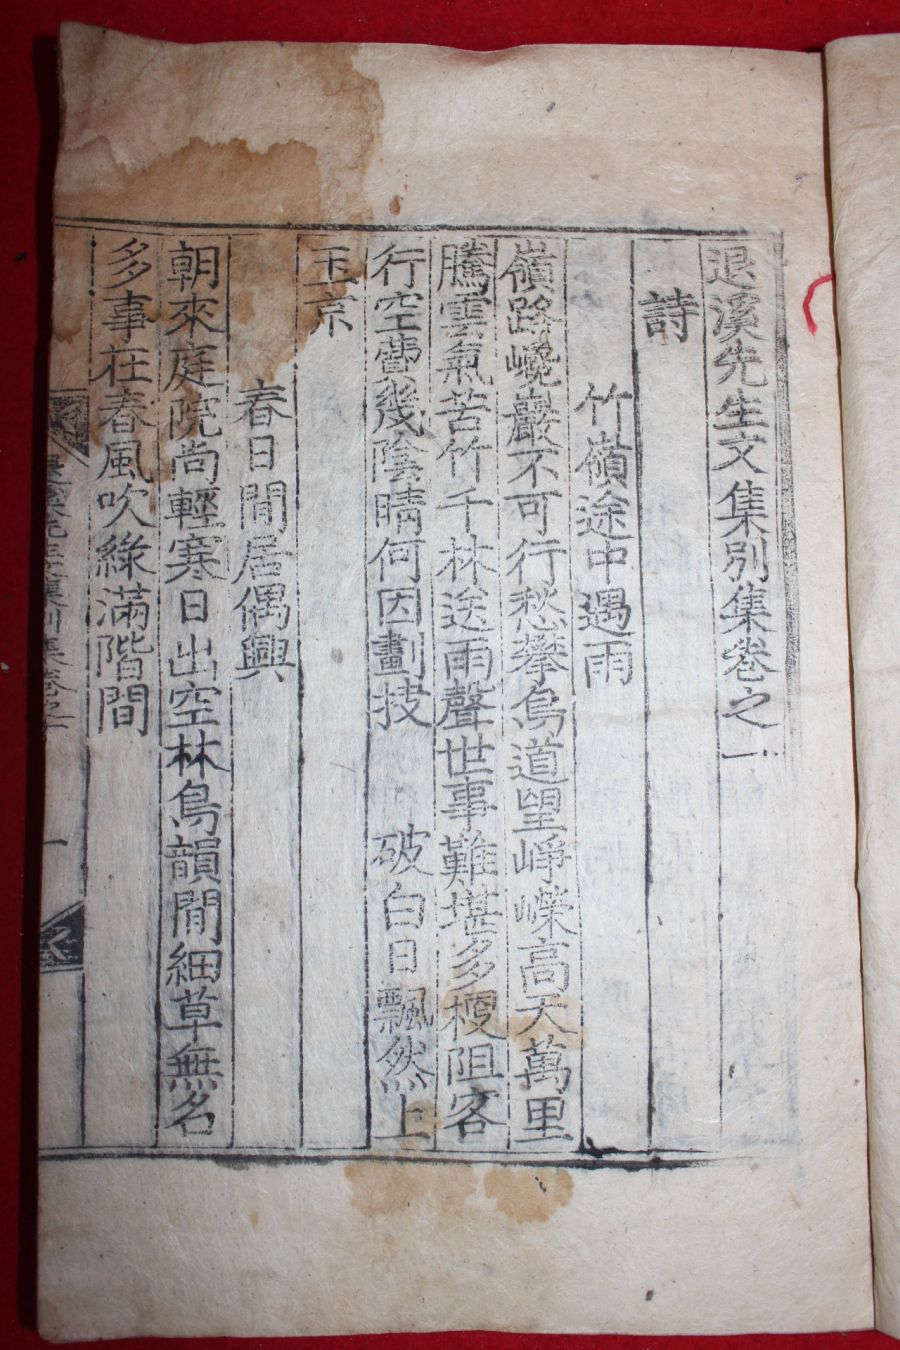 退溪先生文集別集卷之一
詩
竹嶺途中遇雨
嶺路巉巖不可行愁攀鳥道望崢嶸高天萬里
騰雲氣苦竹千林送雨聲世事難堪多梗阻客
行空幾陰晴何因劃 破白日飄然上
玉京
春日閒居偶興
朝來庭院尚輕寒日出空林鳥韻閒細草無名
多事在春風吹綠滿階間
退溪先生文集別集卷之一
一